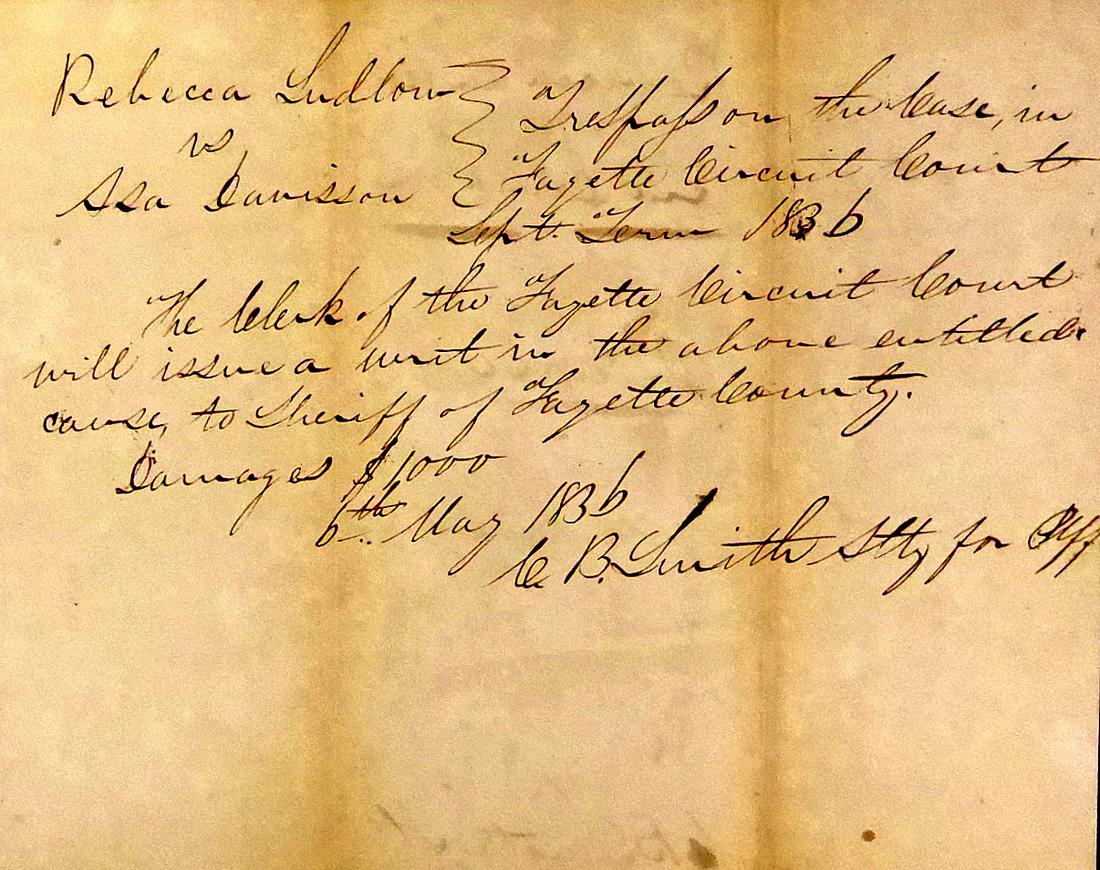 Rebecca Ludlow
vs
Asa Davisson
Trespass on the Case, in
Fayette Circuit Court
Sept. Term 1836
The Clerk of the Fayette Circuit Court
will issue a writ in the above entitled
cause, to Sheriff of Fayette County.
Damages $1000
6th May 1836
C B. Smith Atty for Plff